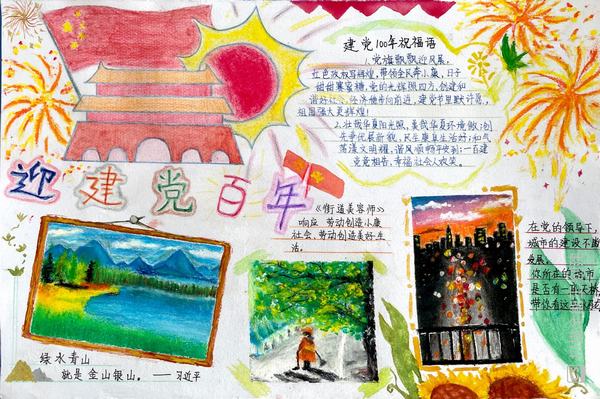 建党100年祝福语
1.党旗飘飘迎风展,
红色政权写辉煌,带领全民奔小康,日子
甜甜赛蜜糖,党的光辉照四方,创建和
谐好社会,经济指市向前进,建党节里默计愿,
祖国强大更辉煌!
2.壮哉华夏阳光照,美哉华夏环境傲;创
先争优展新貌,民生康阜生活好;和气
荡漾文明耀,谐风顺畅平安到;一百建
党竞相告,幸福社会人欢笑。
迎建党百年
《街道美容师》
响应 劳动创造小康
社会,劳动创造美好生
活。
在党的领导下,
城市的建设不断
发展。
你所在的城市
是否有一座天桥
带你看这
绿水青山
就是金山银山。——习近平